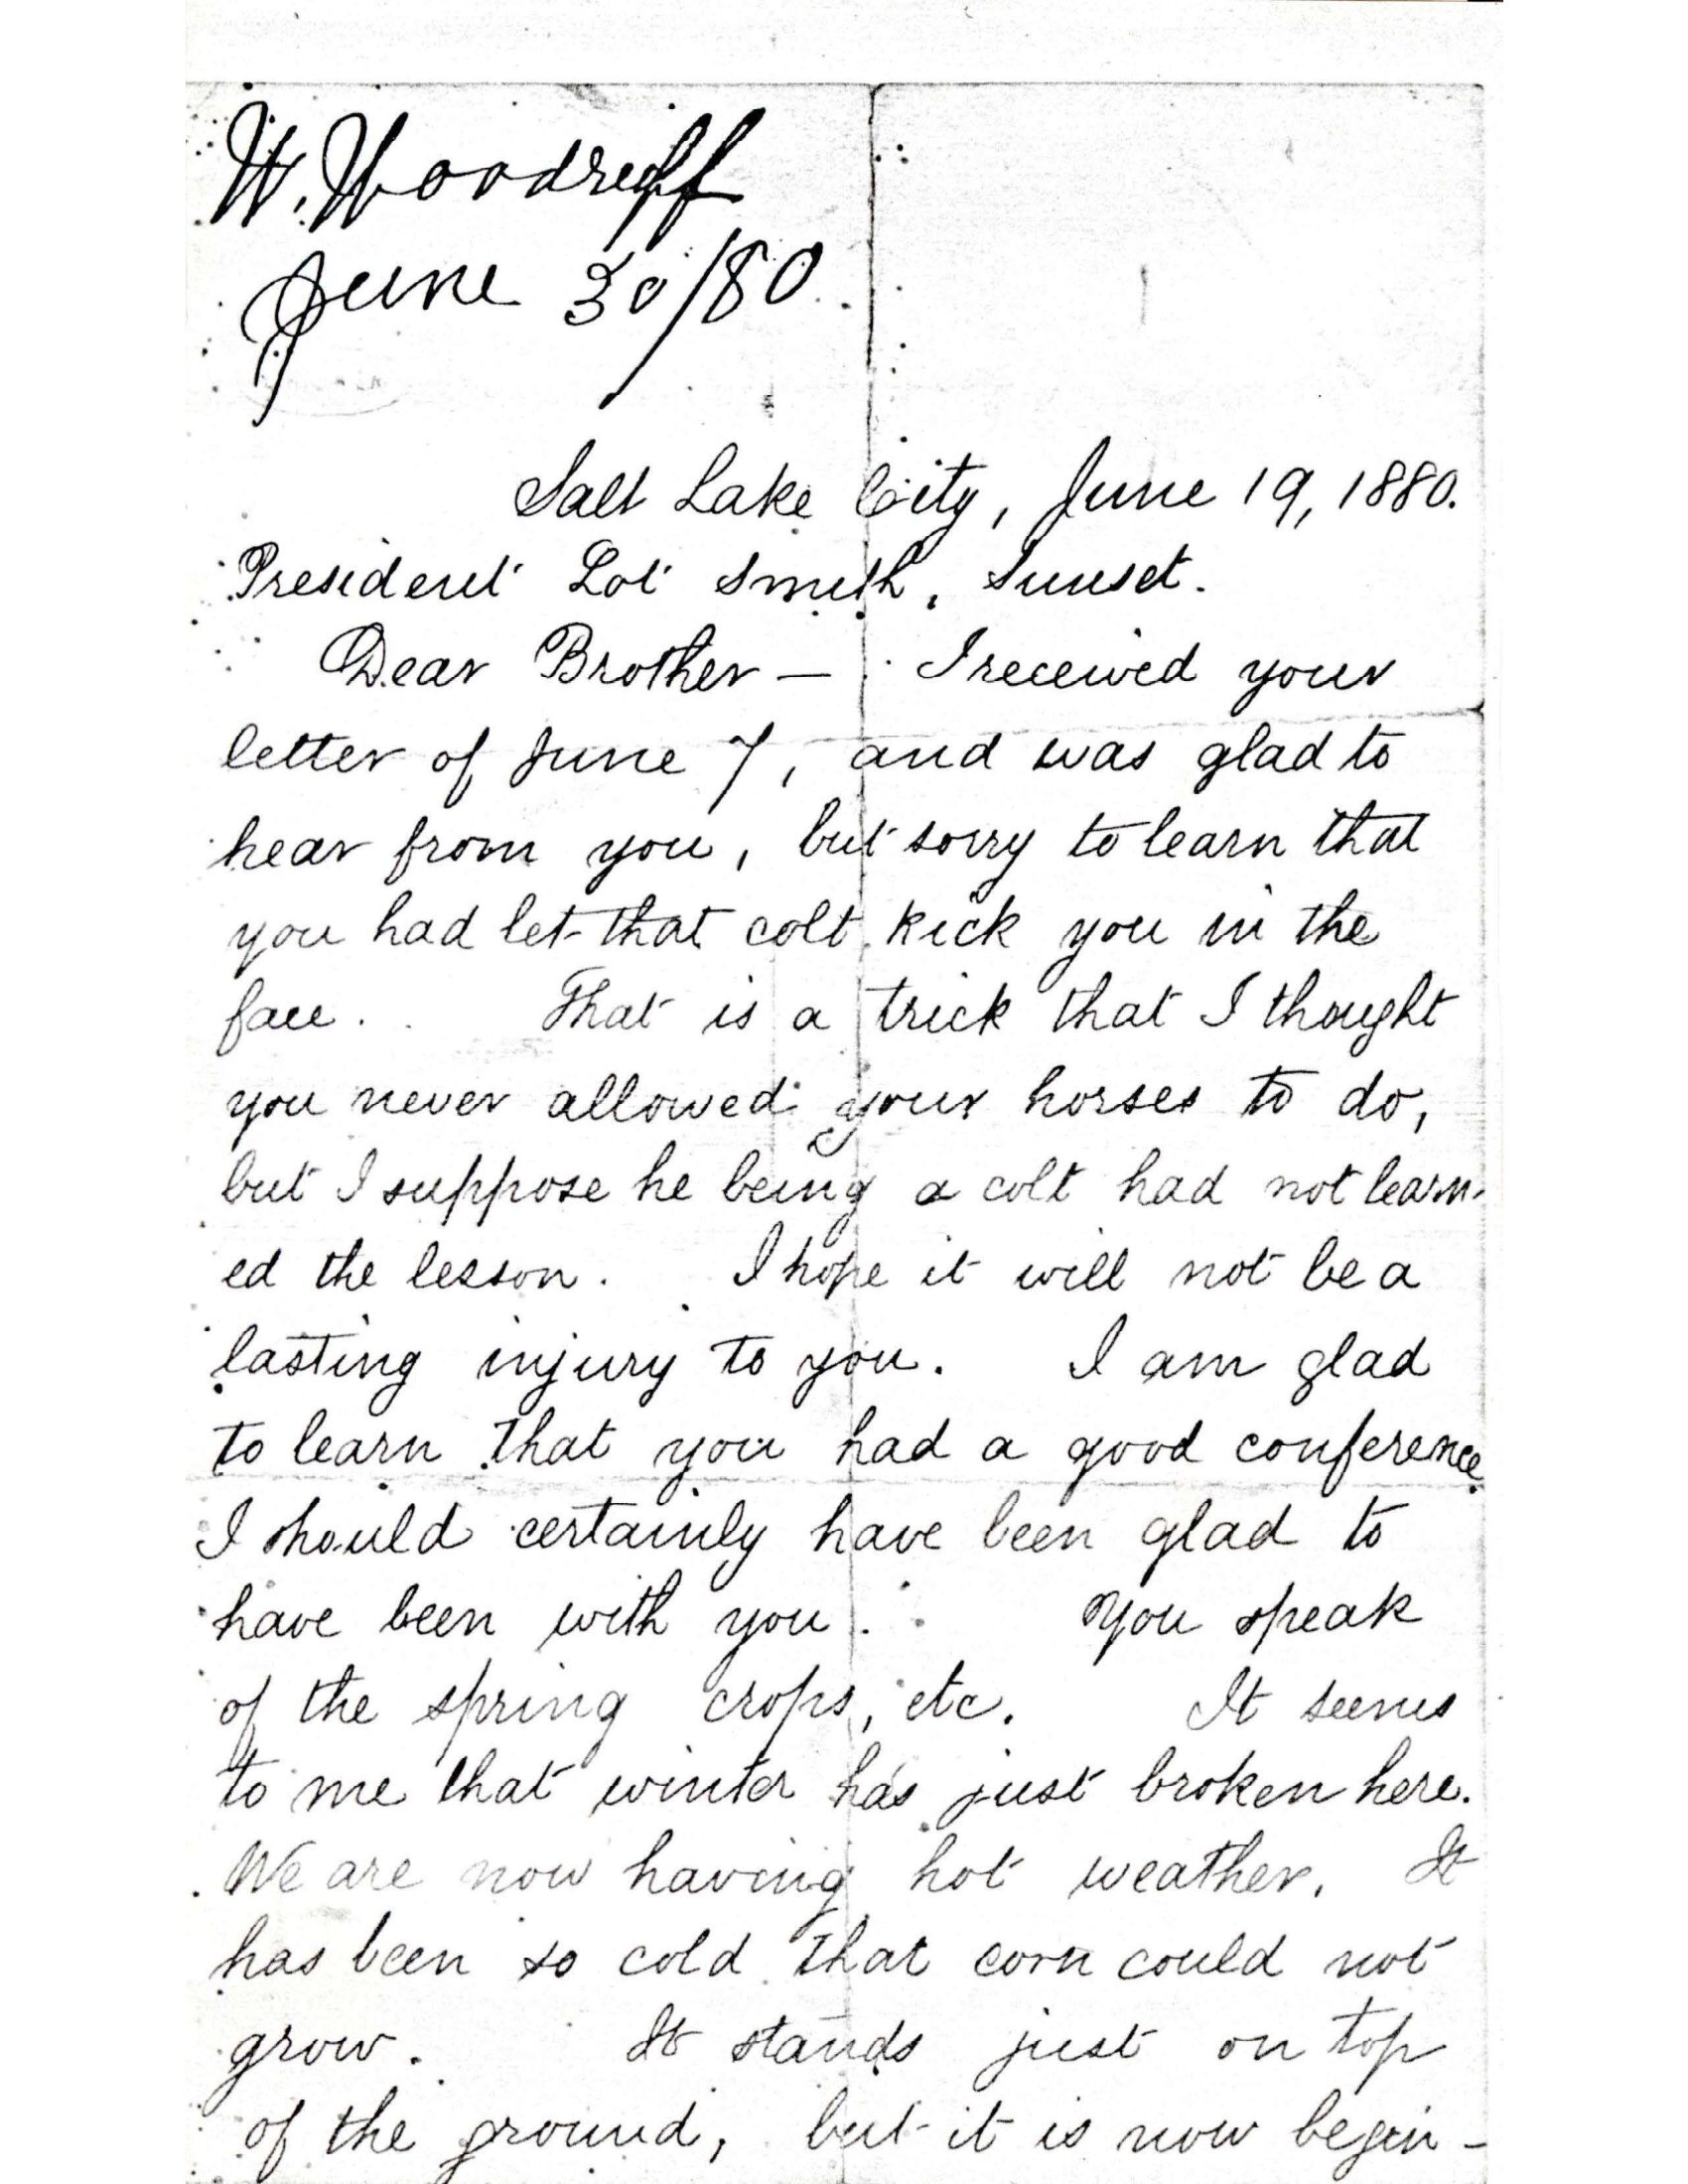 W. Woodruff
June 30/80
Salt Lake City, June 19, 1880.
President Lot Smith, Sunset.
Dear Brother — I received your
letter of June 7, and was glad to
hear from you, but sorry to learn that
you had let that colt kick you in the
face. That is a trick that I thought
you never allowed your horses to do,
but I suppose he being a colt had not learn-
ed the lesson. I hope it will not be a
lasting injury to you. I am glad
to learn that you had a good conference.
I should certainly have been glad to
have been with you. You speak
of the spring crops, etc. It seems
to me that winter has just broken here.
We are now having hot weather. It
has been so cold that corn could not
grow. It stands just on top
of the ground, but it is now begin-